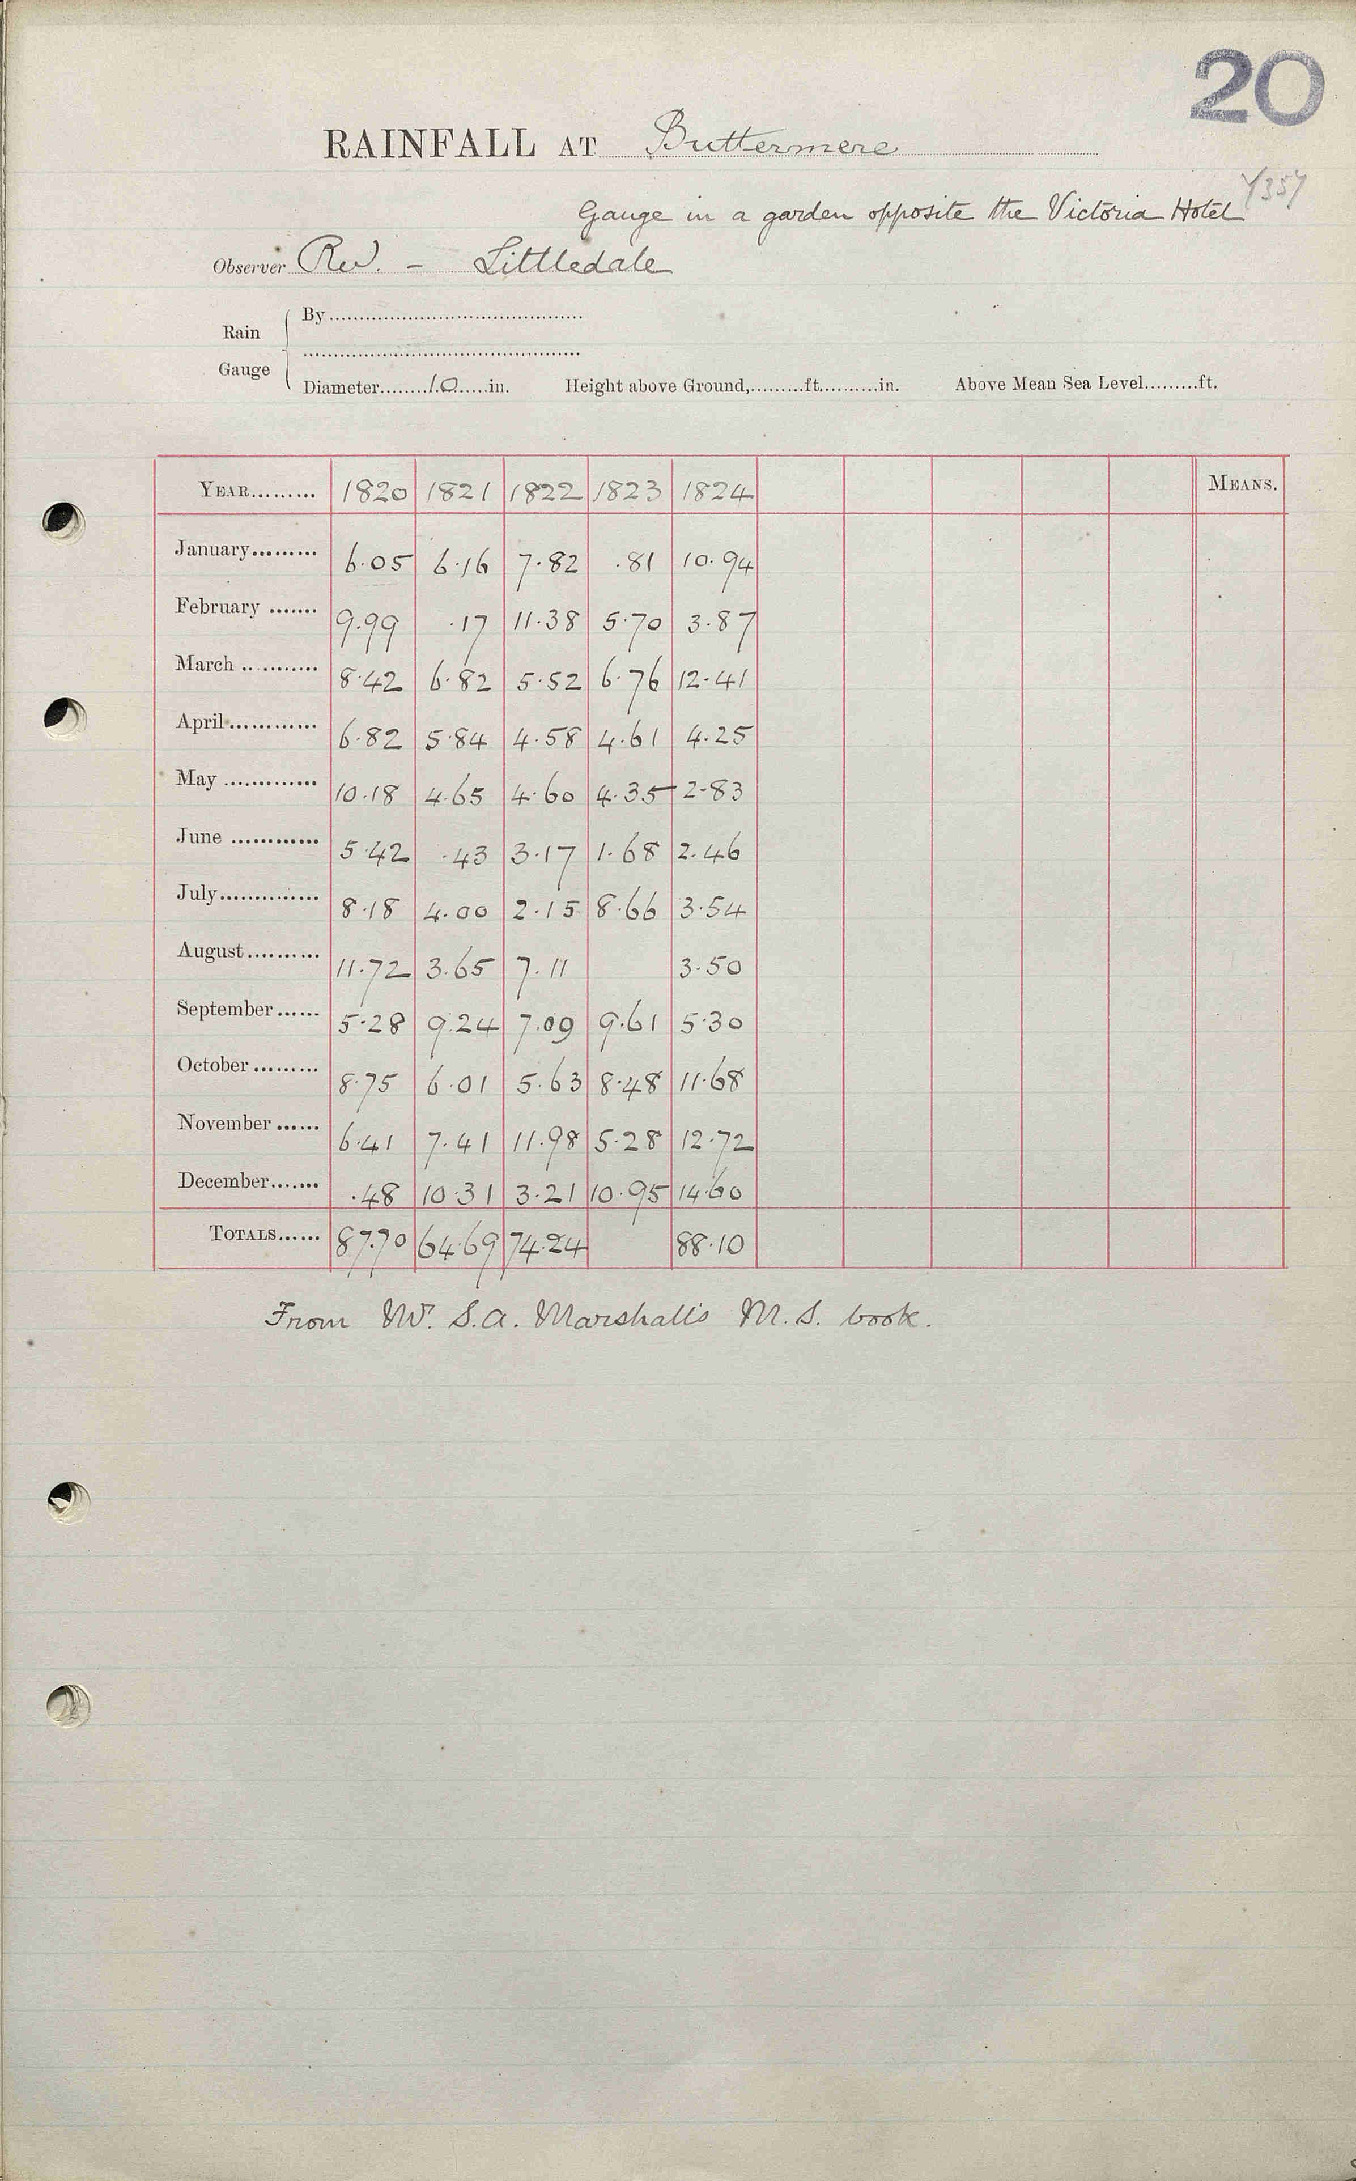 20
RAINFALL AT Buttermere
Y357
Gauge in a garden opposite the Victoria Hotel
Observer Rev. - Littledale
Rain Gauge
By
Diameter 10 in. Height above Ground, ft. in. Above Mean Sea Level ft.
YEAR 1820 1821 1822 1823 1824 MEANS.
January 6.05 6.16 7.82 .81 10.94
February 9.99 .17 11.38 5.70 3.87
March 8.42 6.82 5.52 6.76 12.41
April 6.82 5.84 4.58 4.61 4.25
May 10.18 4.65 4.60 4.35 2.83
June 5.42 .43 3.17 1.68 2.46
July 8.18 4.00 2.15 8.66 3.54
August 11.72 3.65 7.11 3.50
September 5.28 9.24 7.09 9.61 5.30
October 8.75 6.01 5.63 8.48 11.68
November 6.41 7.41 11.98 5.28 12.72
December .48 10.31 3.21 10.95 14.60
TOTALS 87.70 64.69 74.24 88.10
From Mr. S.A. Marshall's M.S. book.